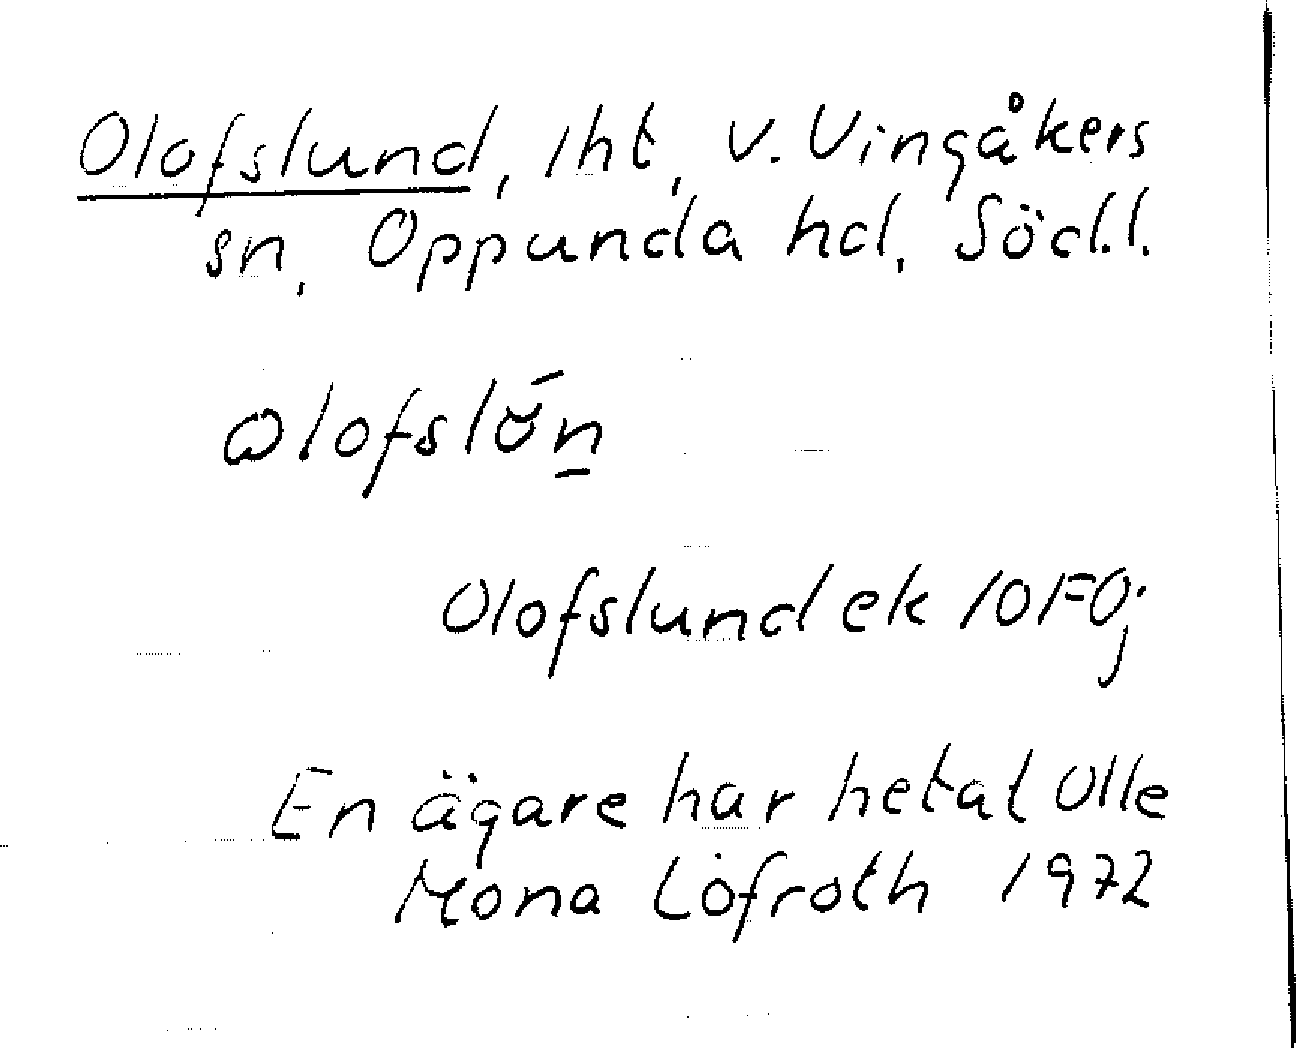 Olofslund, lht, V. Vingåkers
sn, Oppunda hd, Södl.l.
Olofslund ek 10F0j
En ägare har hetat Olle
Mona Löfroth 1972